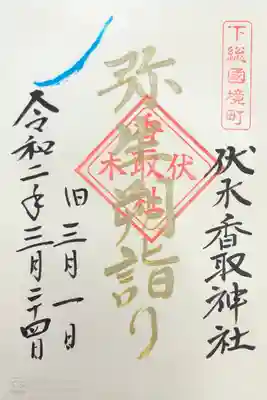 下総國境町
伏木香取神社
弥生朔詣り
伏木
香取
社
旧三月一日
令和二年三月二十四日